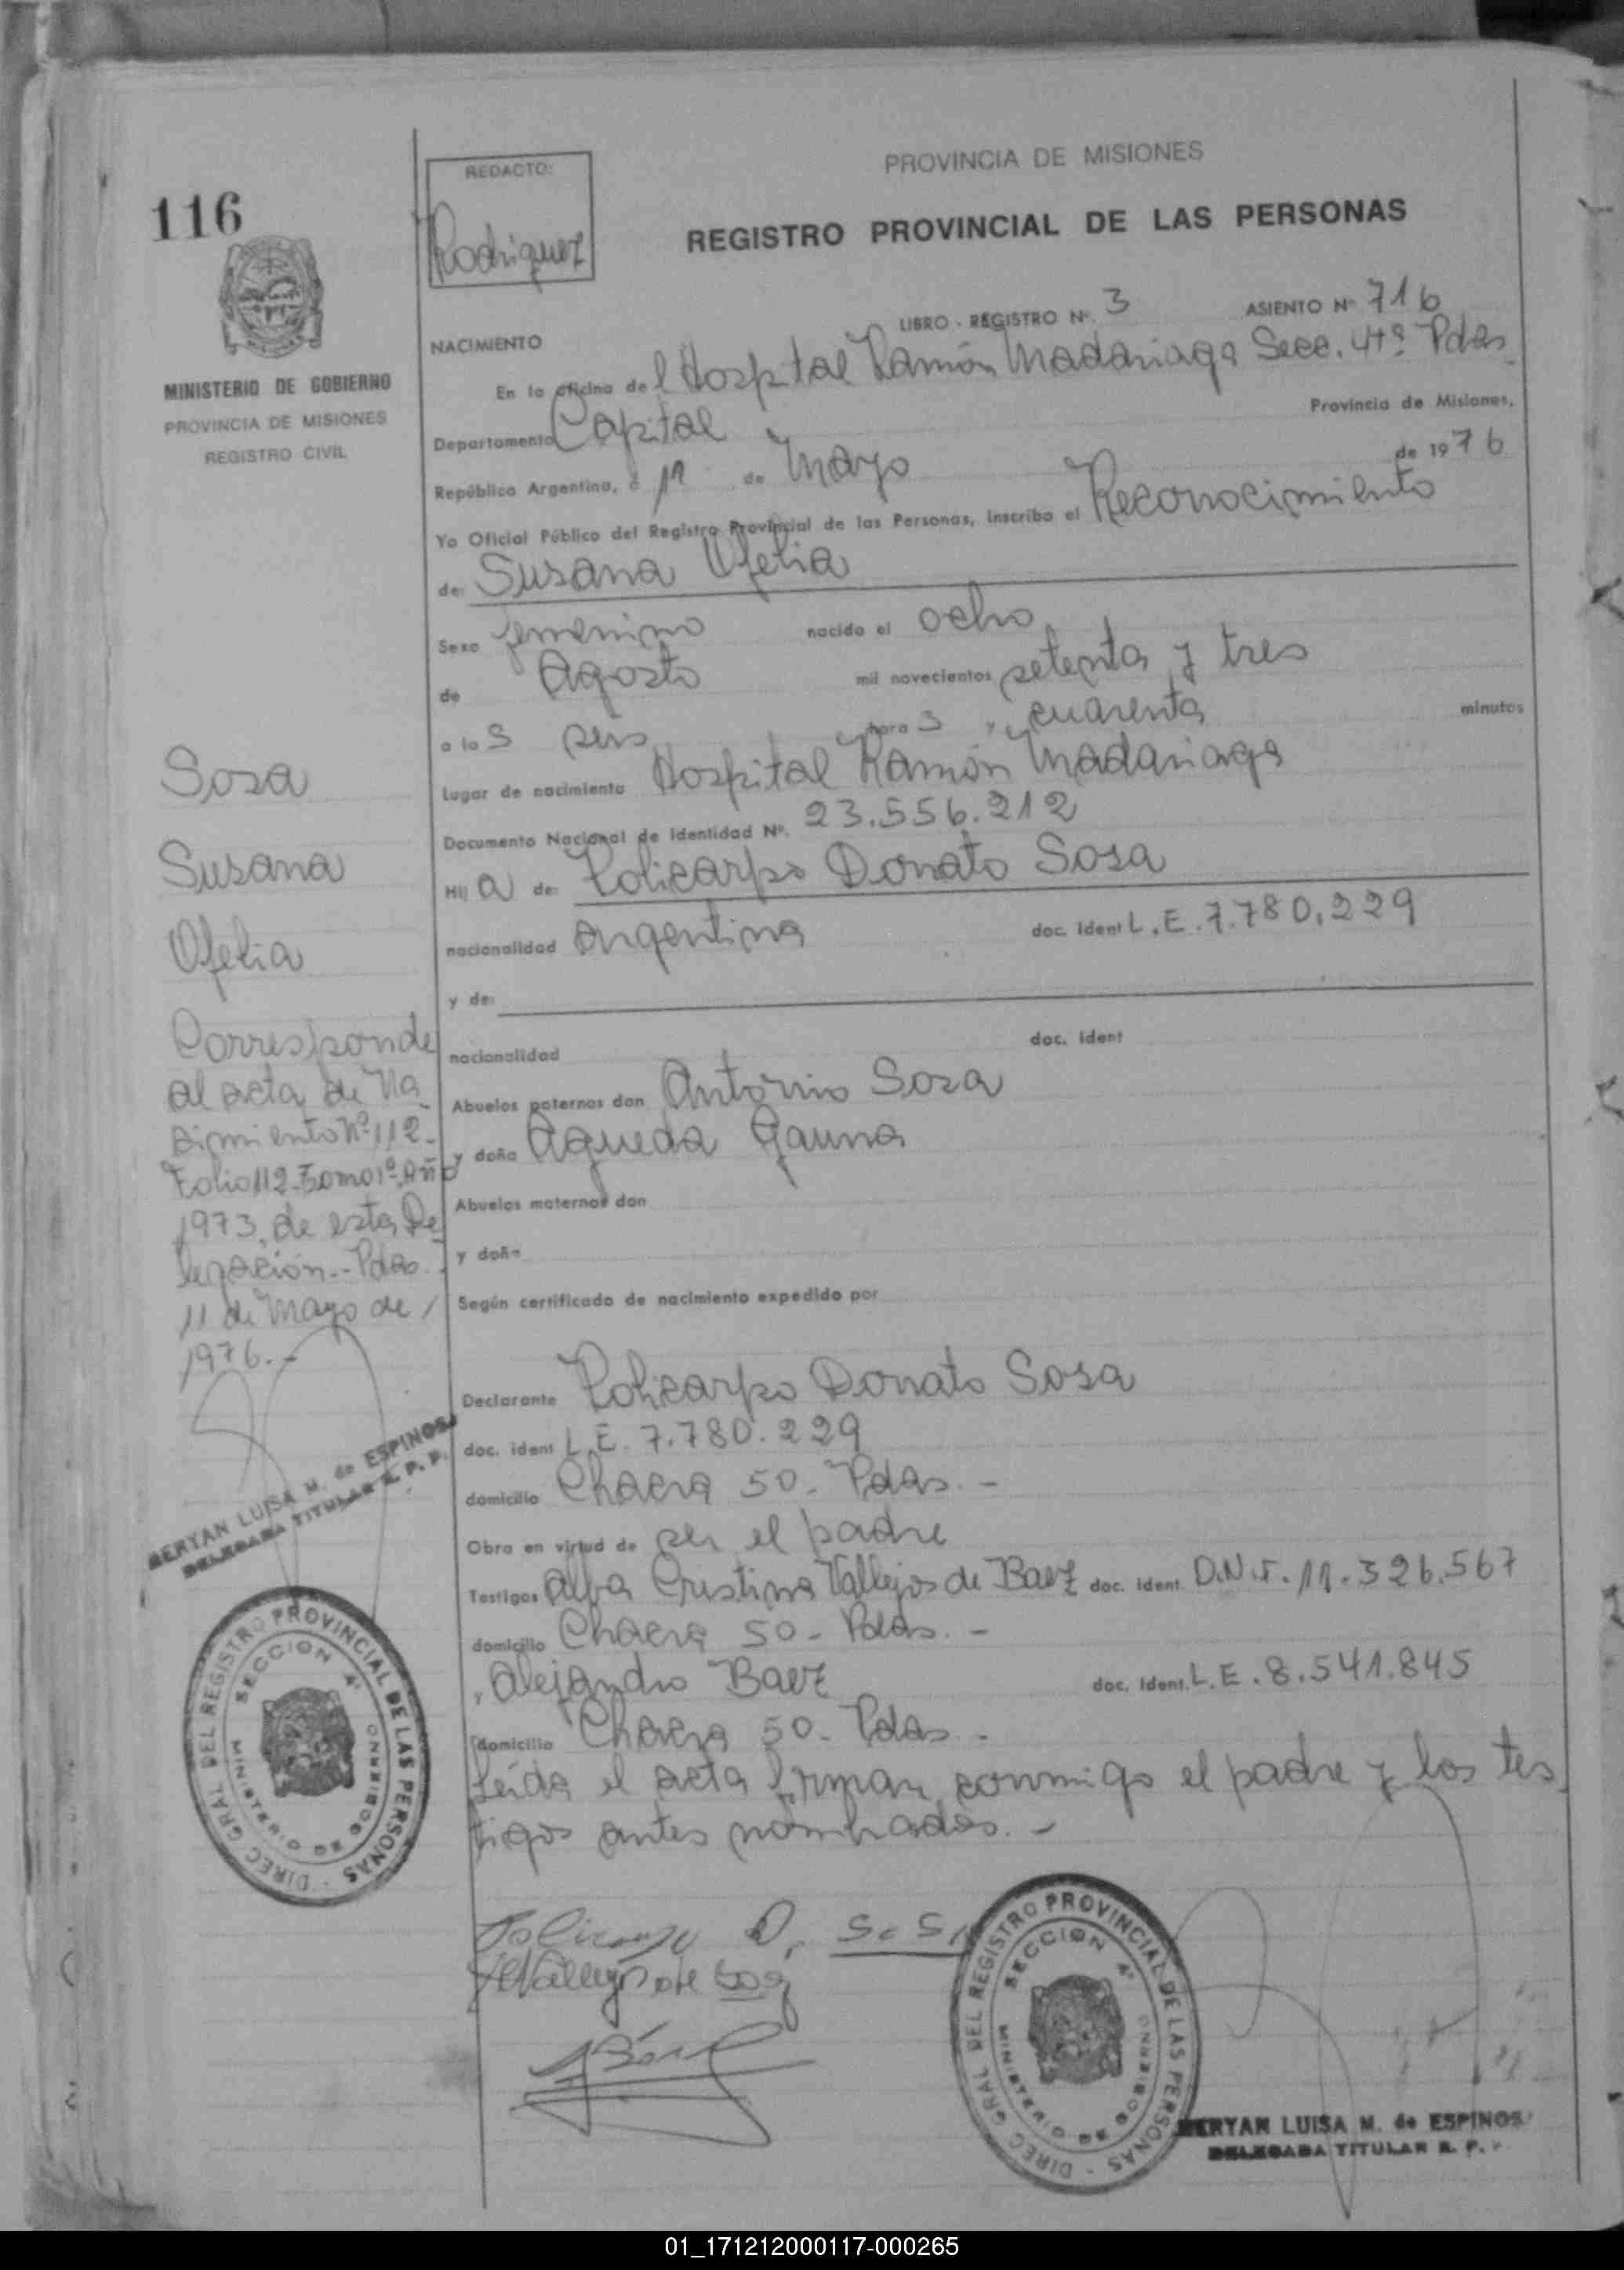 116
MINISTERIO DE GOBIERNO
PROVINCIA DE MISIONES
REGISTRO CIVIL
REDACTO:
Rodriguez
PROVINCIA DE MISIONES
REGISTRO PROVINCIAL DE LAS PERSONAS
LIBRO - REGISTRO Nº 3 ASIENTO Nº 716
NACIMIENTO
En la oficina del Hospital Ramón Madariaga Secc. 4tª Pdas
Departamento Capital Provincia de Misiones,
República Argentina, a 11 de Mayo de 1976
Yo Oficial Público del Registro Provincial de las Personas, inscribo el Reconocimiento
de: Susana Ofelia
Sexo femenino nacido el ocho
de Agosto mil novecientos setenta y tres
a las seis horas y cuarenta minutos
Lugar de nacimiento Hospital Ramón Madariaga
Documento Nacional de Identidad Nº. 23.556.212
Hija de: Policarpo Donato Sosa
nacionalidad argentina doc. Ident L.E. 7.780.229
y de:
nacionalidad doc. Ident
Abuelos paternos don Antonio Sosa
y doña Agueda Gauna
Abuelos maternos don
y doña
Según certificado de nacimiento expedido por
Declarante Policarpo Donato Sosa
doc. ident L.E. 7.780.229
domicilio Chacra 50. Pdas. -
Obra en virtud de ser el padre
Testigos Alba Cristina Vallejos de Baez doc. ident. D.N.I. 11.326.567
domicilio Chacra 50 - Pdas. -
y Alejandro Baez doc. Ident. L.E. 8.541.845
domicilio Chacra 50 - Pdas -
Leída el acta firman conmigo el padre y los tes
tigos antes nombrados. -
Sosa
Susana
Ofelia
Corresponde
al acta de Na
cimiento Nº 112-
Folio 112-Tomo 1º-Año
1973, de esta De
legación.- Pdas.
11 de Mayo de /
1976.-
BERYAN LUISA M. de ESPINOSA
DELEGADA TITULAR R. P. P.
DIREC. GRAL DEL REGISTRO PROVINCIAL DE LAS PERSONAS
SECCION 4ª
MINISTERIO DE GOBIERNO
Policarpo D. Sosa
DIREC. GRAL DEL REGISTRO PROVINCIAL DE LAS PERSONAS
SECCION 4ª
MINISTERIO DE GOBIERNO
BERYAN LUISA M. de ESPINOSA
DELEGADA TITULAR R. P. P.
01_171212000117-000265